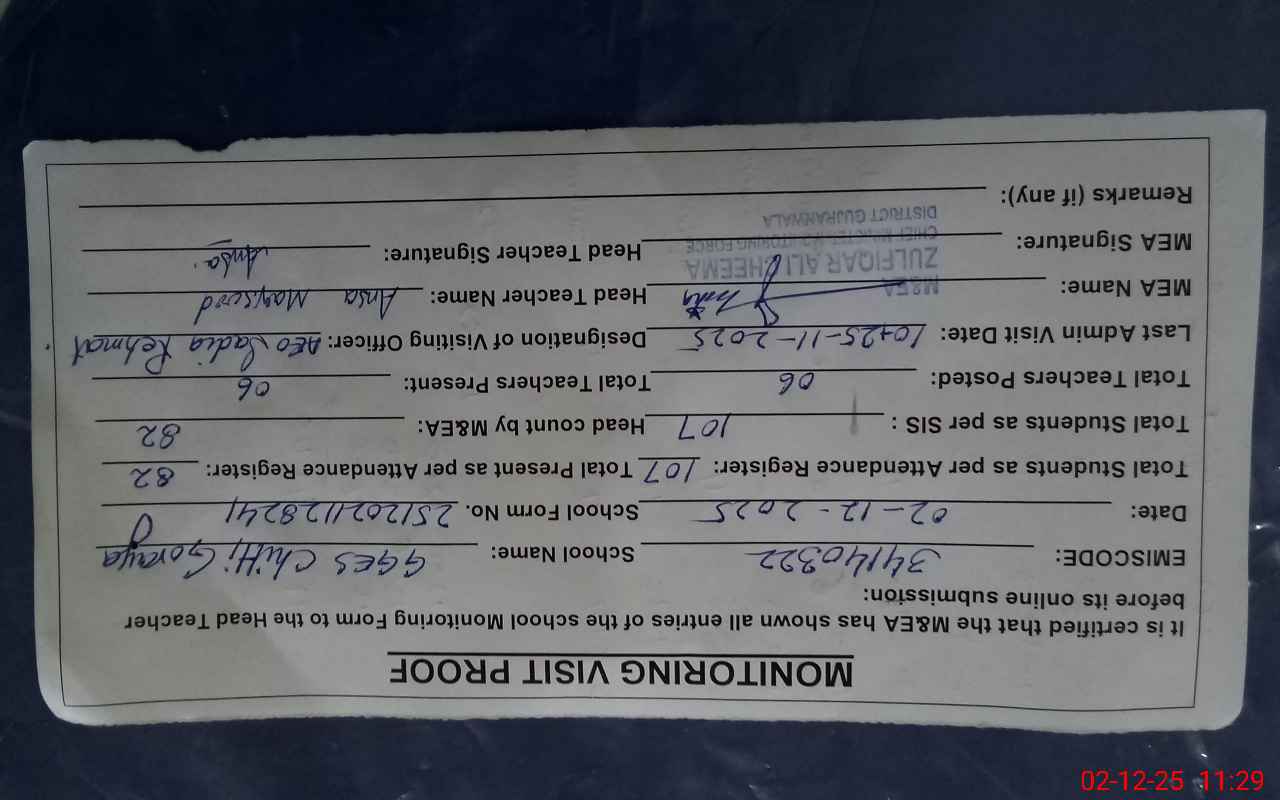 MONITORING VISIT PROOF
It is certified that the M&EA has shown all entries of the school Monitoring Form to the Head Teacher
before its online submission:
EMISCODE: 34140322 School Name: GGES Chitti Goraya
Date: 02-12-2025 School Form No. 251202112824
Total Students as per Attendance Register: 107 Total Present as per Attendance Register: 82
Total Students as per SIS : 107 Head count by M&EA: 82
Total Teachers Posted: 06 Total Teachers Present: 06
Last Admin Visit Date: 25-11-2025 Designation of Visiting Officer: AEO Sadia Rehmat
MEA Name: Head Teacher Name: Ansa
M&EA
ZULFIQAR ALI CHEEMA
CHIEF MINISTER MONITORING FORCE
DISTRICT GUJRANWALA
MEA Signature: Head Teacher Signature: Ansa
Remarks (if any):
02-12-25 11:29